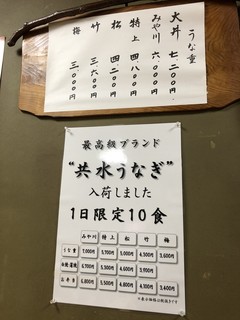 うな重
大丼 七二〇〇円
みや川 六〇〇〇円
特上 四八〇〇円
松 四二〇〇円
竹 三六〇〇円
梅 三〇〇〇円
最高級ブランド
"共水うなぎ"
入荷しました
1日限定10食
みや川 特上 松 竹 梅
うな重 7,000円 5,700円 5,000円 4,500円 3,600円
白焼・蒲焼 6,700円 4,900円
お弁当 6,800円 5,500円 4,800円 4,100円 3,400円